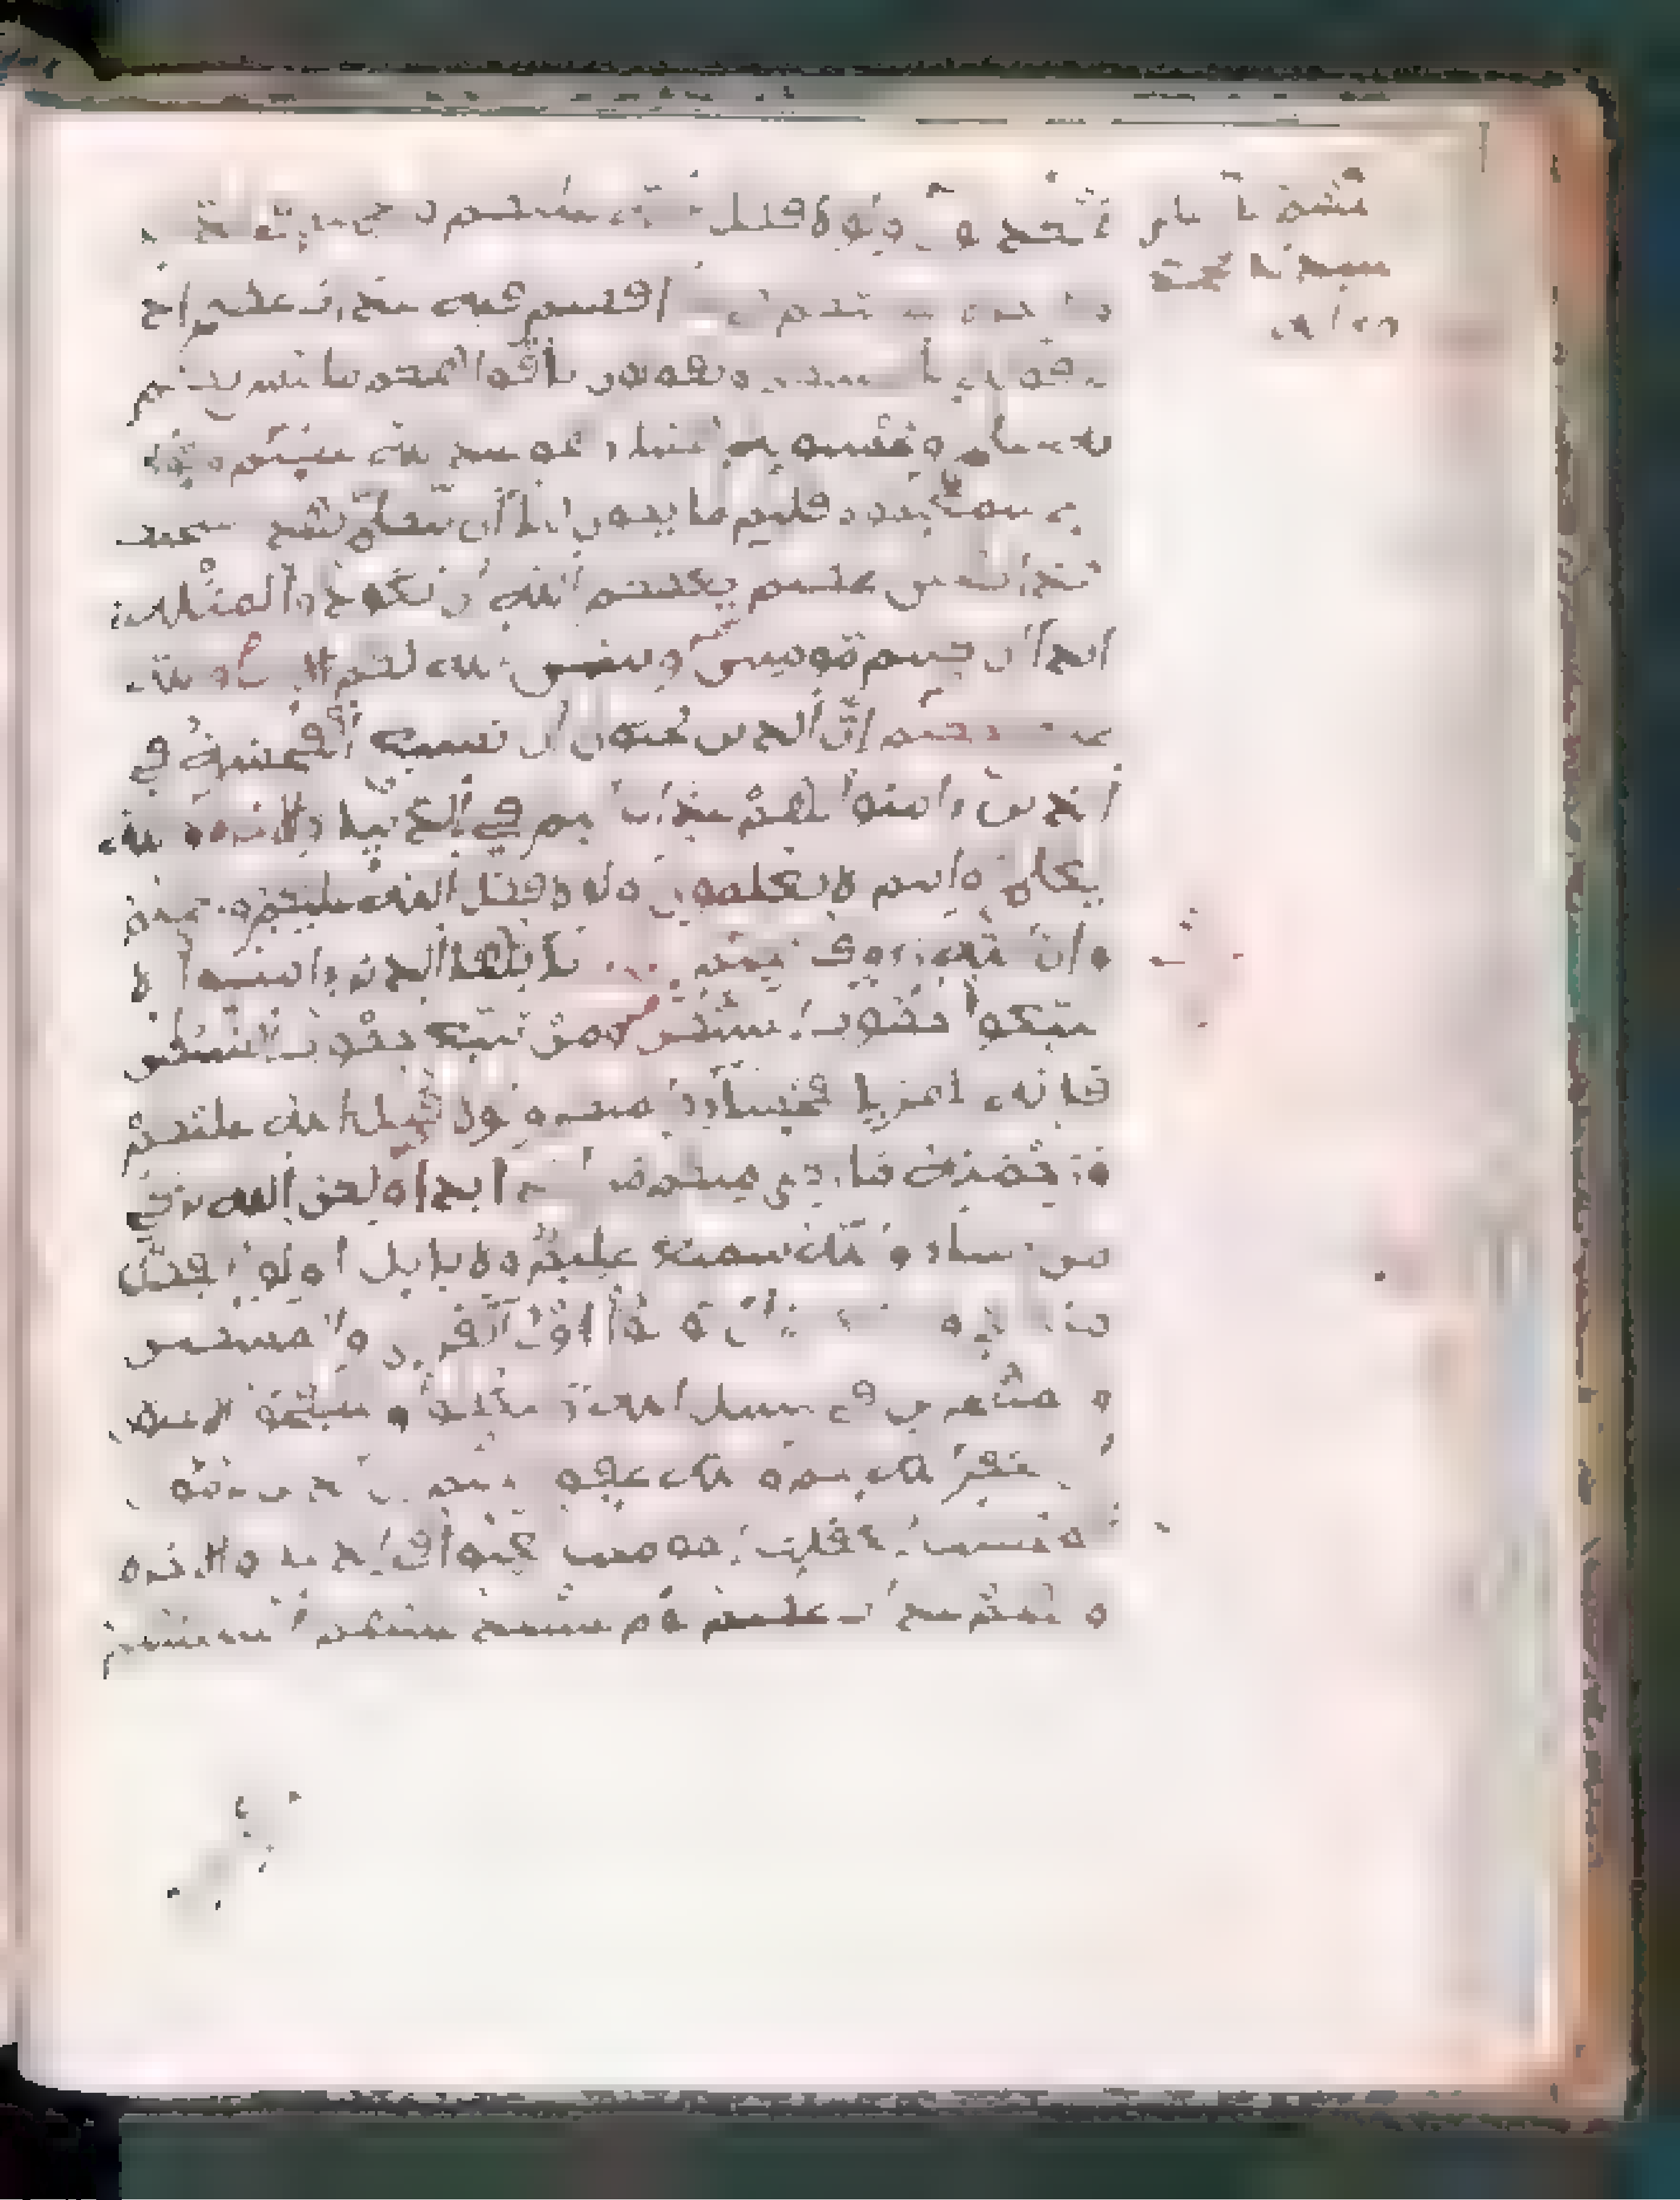 ولولا فضل الله عليكم ورحمته في
افضتم فيه عذاب عظيم اذ
تلقونه بألسنتكم وتقولون بأفواهكم ما ليس لكم
به علم وتحسبونه هينا وهو عند الله عظيم ولولا
اذ سمعتموه قلتم ما يكون لنا أن نتكلم بهذا سبحنك
هذا بهتن عظيم يعظكم الله أن تعودوا لمثله
ابدا ان كنتم مومنين ويبين الله لكم الايت والله
عليم حكيم إن الذين يحبون أن تشيع الفحشة في
الذين ءامنوا لهم عذاب اليم في الدنيا والاخرة والله
يعلم وانتم لا تعلمون ولولا فضل الله عليكم ورحمته
وان الله رءوف رحيم يايها الذين ءامنوا لا
تتبعوا خطوت الشيطن ومن يتبع خطوت الشيطن
فإنه يامر بالفحشاء والمنكر ولولا فضل الله عليكم
ورحمته ما زكى منكم من احد ابدا ولكن الله يزكي
من يشاء والله سميع عليم ولا ياتل اولوا الفضل
منكم والسعة ان يوتوا اولي القربى والمسكين
والمهجرين في سبيل الله وليعفوا وليصفحوا الا تحبون
ان يغفر الله لكم والله غفور رحيم ان الذين يرمون
المحصنت الغفلت المومنت لعنوا في الدنيا والاخرة
ولهم عذاب عظيم يوم تشهد عليهم السنتهم